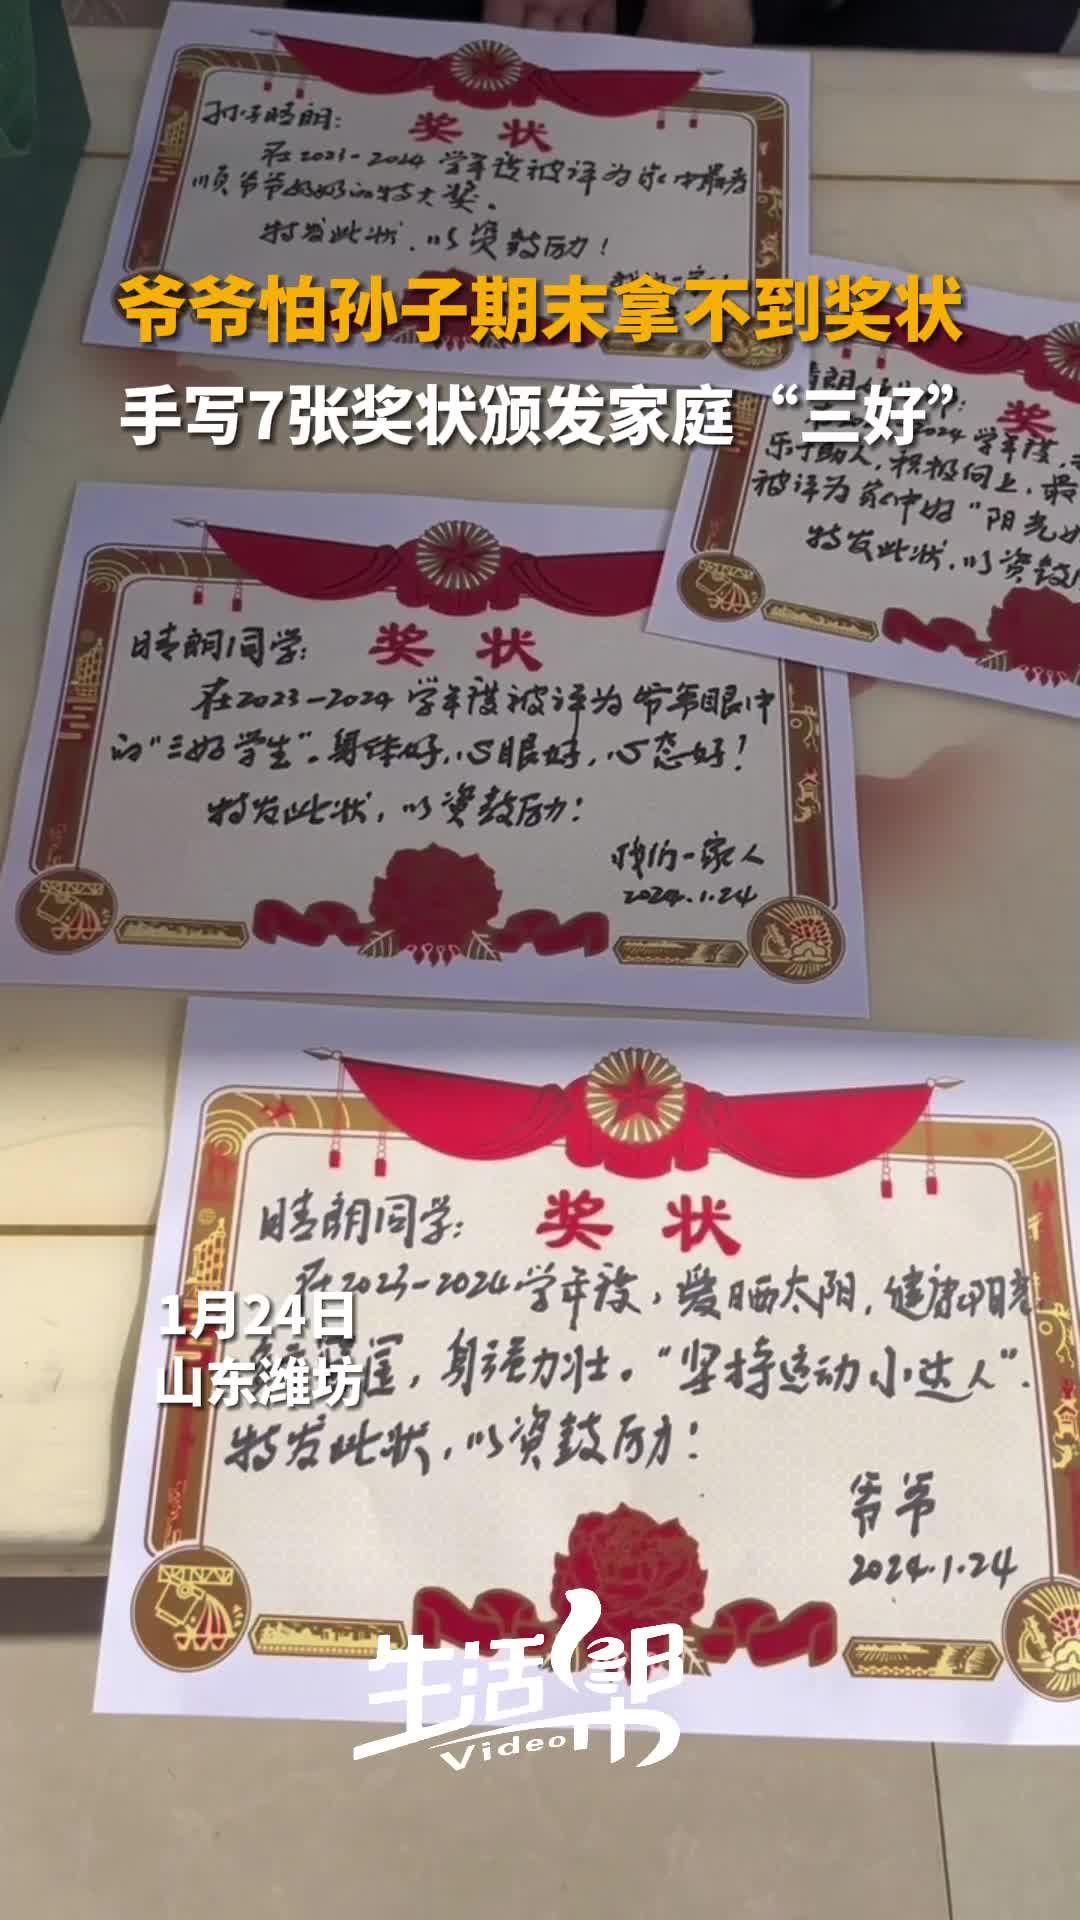 孙子晴朗:
奖 状
在2023-2024学年度被评为家中最孝
顺爷爷奶奶的特大奖。
特发此状,以资鼓励!
爷爷怕孙子期末拿不到奖状
手写7张奖状颁发家庭“三好”
奖
2024学年度,
乐于助人,积极向上,最
被评为家中的“阳光
特发此状,以资鼓
晴朗同学:
奖 状
在2023-2024学年度被评为爷爷眼中
的“三好学生”。身体好,心眼好,心态好!
特发此状,以资鼓励!
我们一家人
2024.1.24
晴朗同学:
奖 状
在2023-2024学年度,爱晒太阳,健康阳光
身强力壮。“坚持运动小达人”.
特发此状,以资鼓励!
爷爷
2024.1.24
1月24日
山东潍坊
生活帮
Video